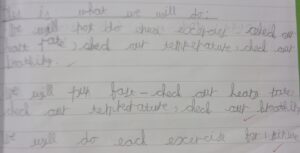 is what we will do:
we will not do our exercise, check our
heart rate, check our temperature, check our
breathing.
we will put fase - check our heart rate,
check our temperature, check our breathing
we will do each exercise for 1 minute